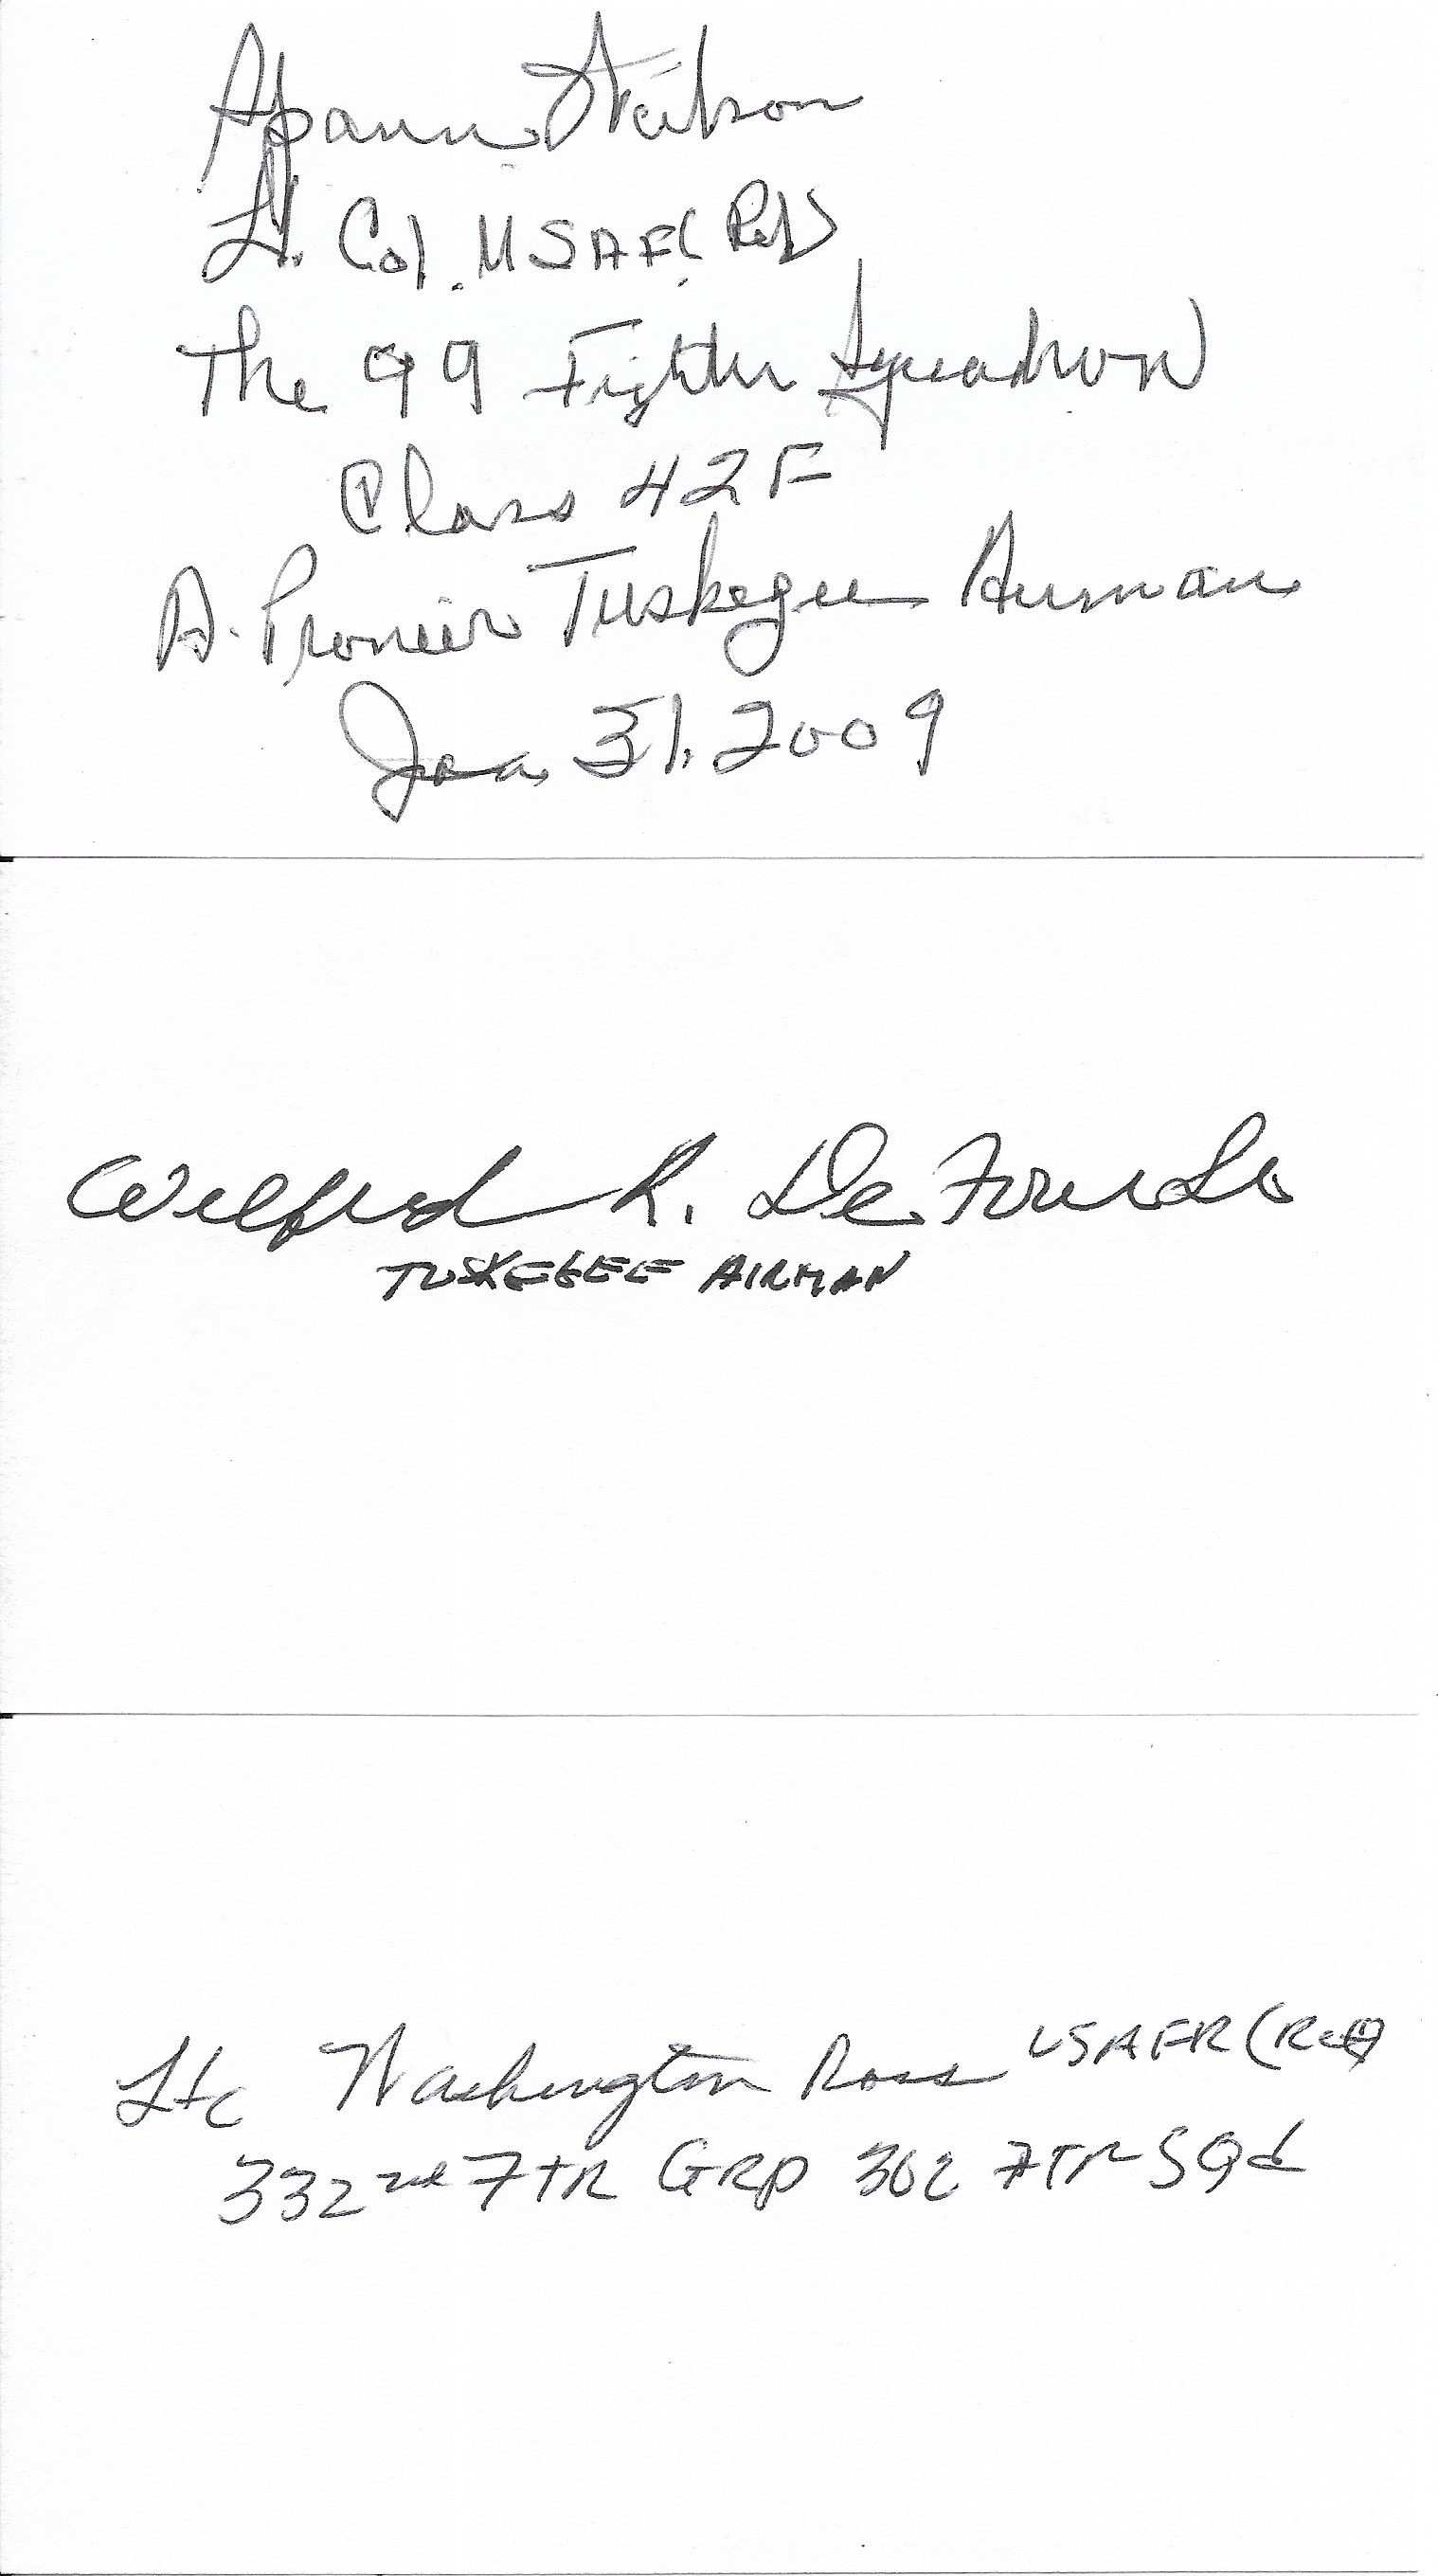 Spann Watson
Lt. Col. USAF (Ret)
The 99 Fighter Squadron
Class 42F
A. Pioneer Tuskegee Airman
Jan 31, 2009
Wilfred R. DeFour
TUSKEGEE AIRMAN
Ltc Washington Ross USAFR (Ret)
332nd FTR GRP 302 FTR SQd